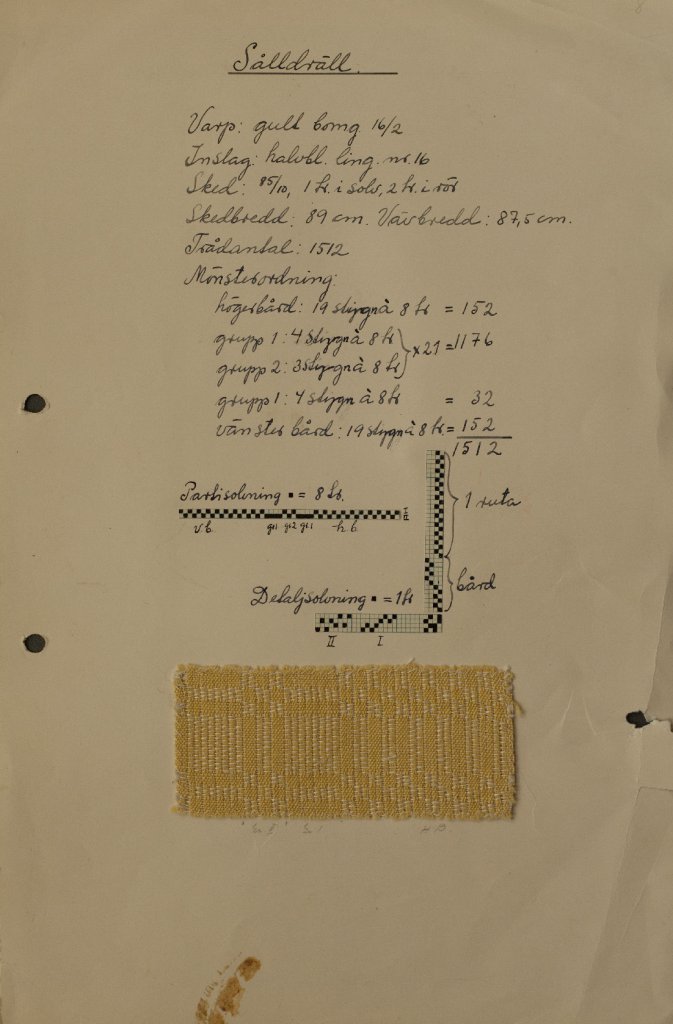 Sålldräll.
Varp: gult bomg. 16/2
Inslag: halvbl. ling. nr. 16
Sked: 85/10, 1 tr. i solv, 2 tr. i rör
Skedbredd: 89 cm. Vävbredd: 87,5 cm.
Trådantal: 1512
Mönsterordning:
högerbård: 19 stygn à 8 tr = 152
grupp 1: 4 stygn à 8 tr
grupp 2: 3 stygn à 8 tr
} x 21 = 1176
grupp 1: 4 stygn à 8 tr = 32
vänster bård: 19 stygn à 8 tr. = 152
1512
Partisolvning ▪ = 8 tr.
v.b. gr1 gr2 gr1 h.b.
1 ruta
bård
Detaljsolvning ▪ = 1 tr
II I
Gr II Gr I H.B.